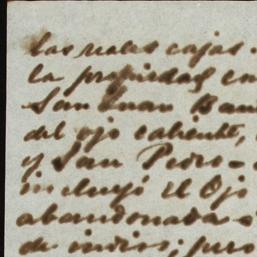 las reales cajas.
la propiedad en
San Juan Bau
del ojo caliente,
y San Pedro=
incluyó el Ojo
abandonada
de indios; pero